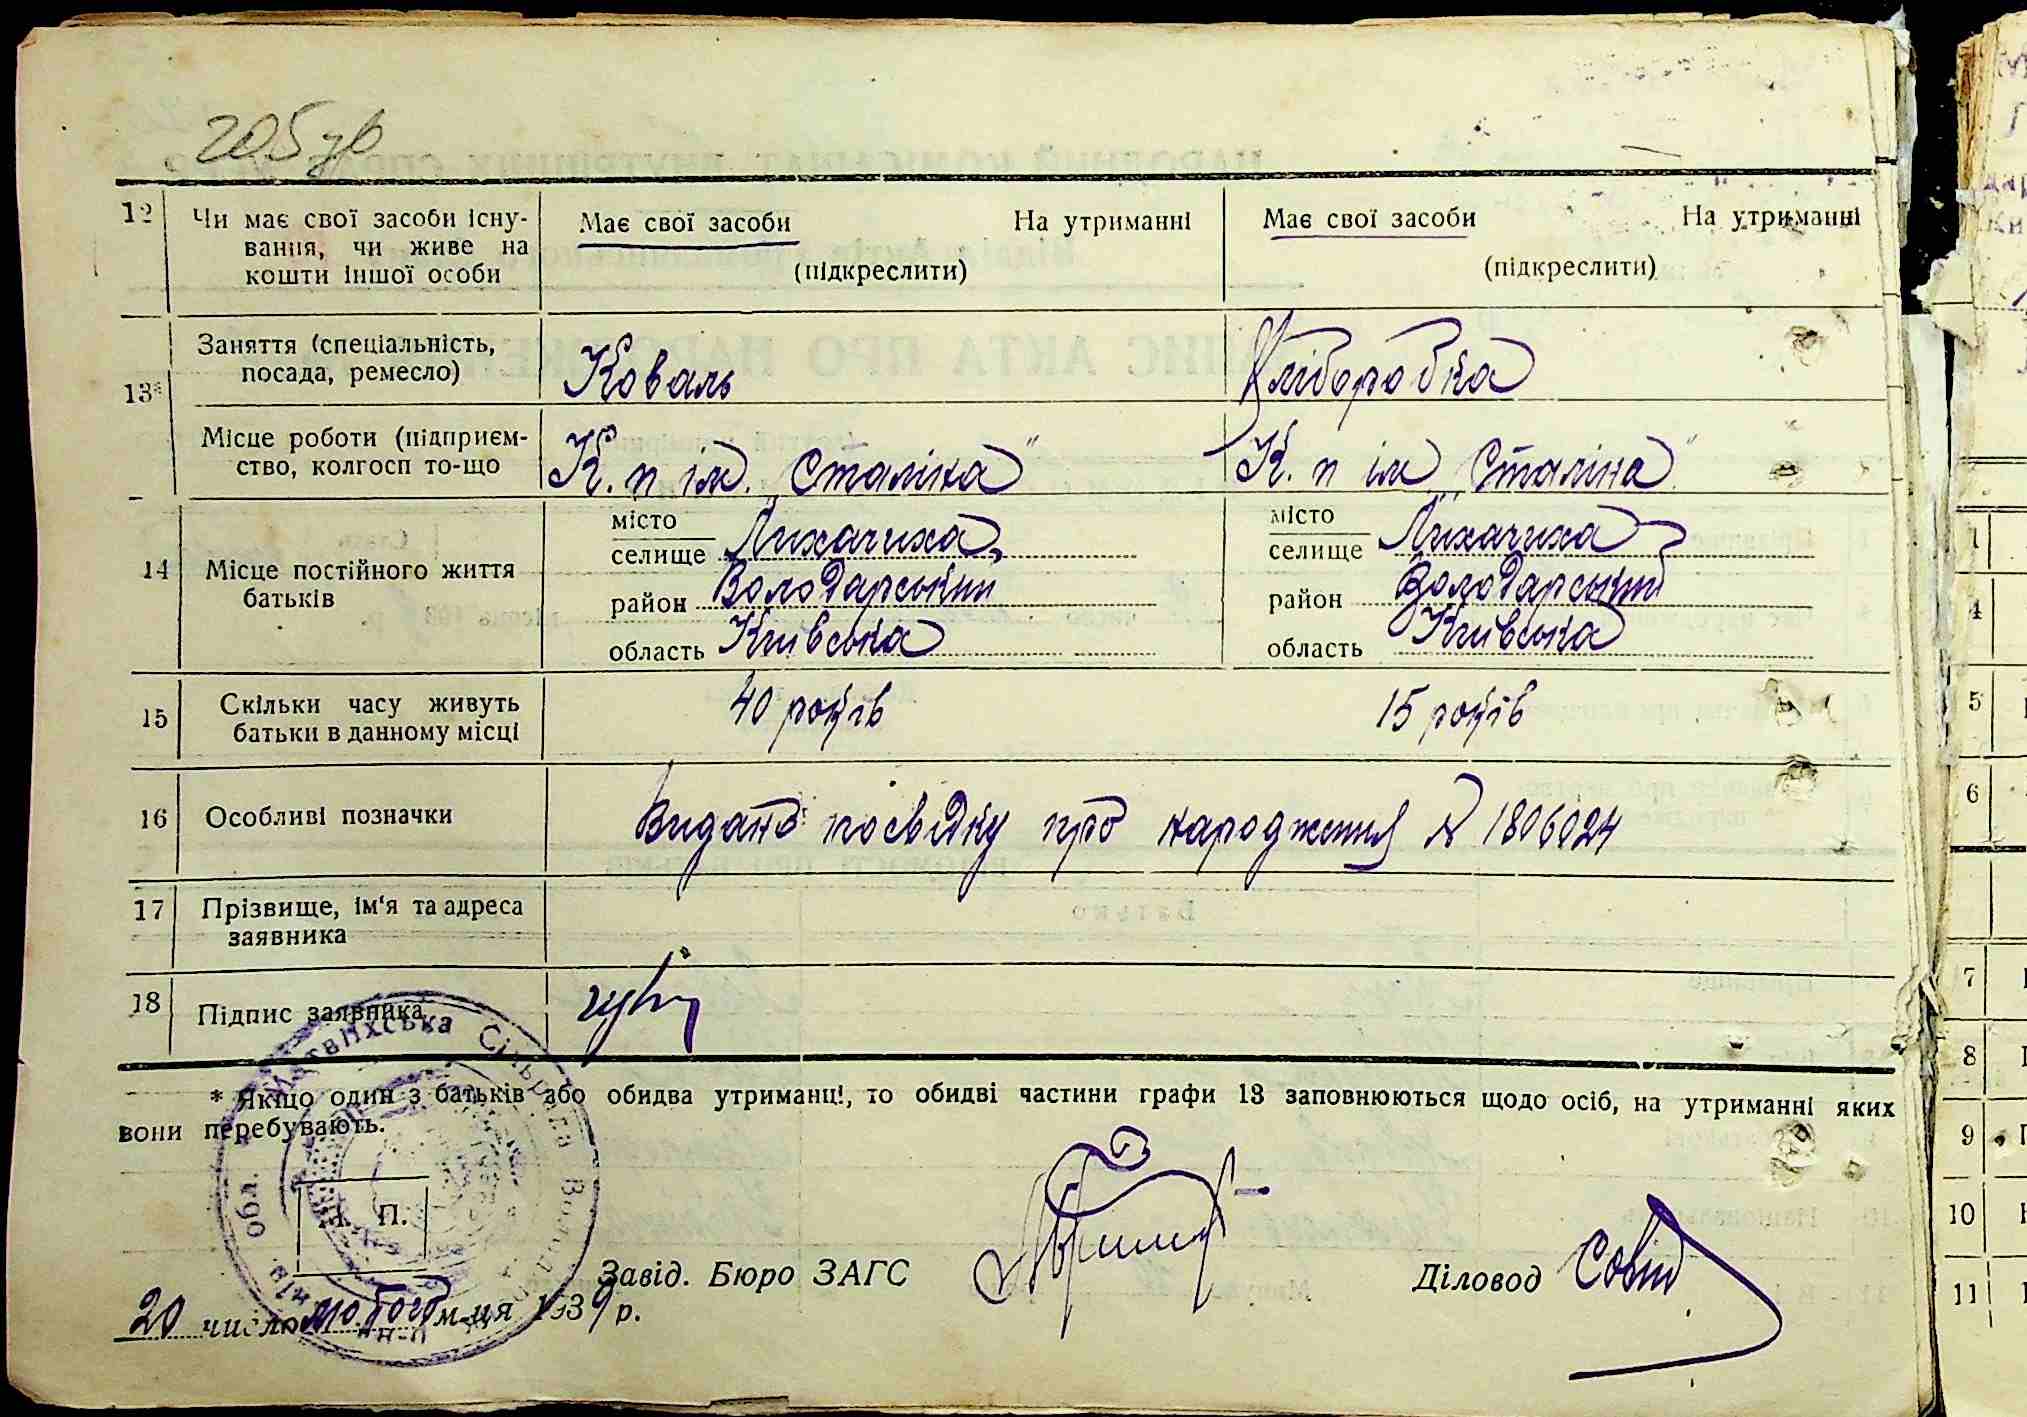 205 зв
12 Чи має свої засоби існу-
вання, чи живе на
кошти іншої особи
Має свої засоби На утриманні
(підкреслити)
Має свої засоби На утриманні
(підкреслити)
13*
Заняття (спеціальність,
посада, ремесло)
Коваль
Хліборобка
Місце роботи (підприєм-
ство, колгосп то-що
К. п ім. „Сталіна"
К. п ім „Сталіна"
14 Місце постійного життя
батьків
місто
селище Лихачиха,
район Володарський
область Київська
місто
селище Лихачиха
район Володарський
область Київська
15 Скільки часу живуть
батьки в данному місці
40 років
15 років
16 Особливі позначки
Видано посвідку про народження № 1806024
17 Прізвище, ім'я та адреса
заявника
18 Підпис заявника
* Якщо один з батьків або обидва утриманці, то обидві частини графи 13 заповнюються щодо осіб, на утриманні яких
вони перебувають.
М. П.
Матвіїхська Сільрада Волод
обл.
Завід. Бюро ЗАГС
Діловод
20 число лютого м-ця 1939 р.
1
4
5
6
7
8
9
10
11